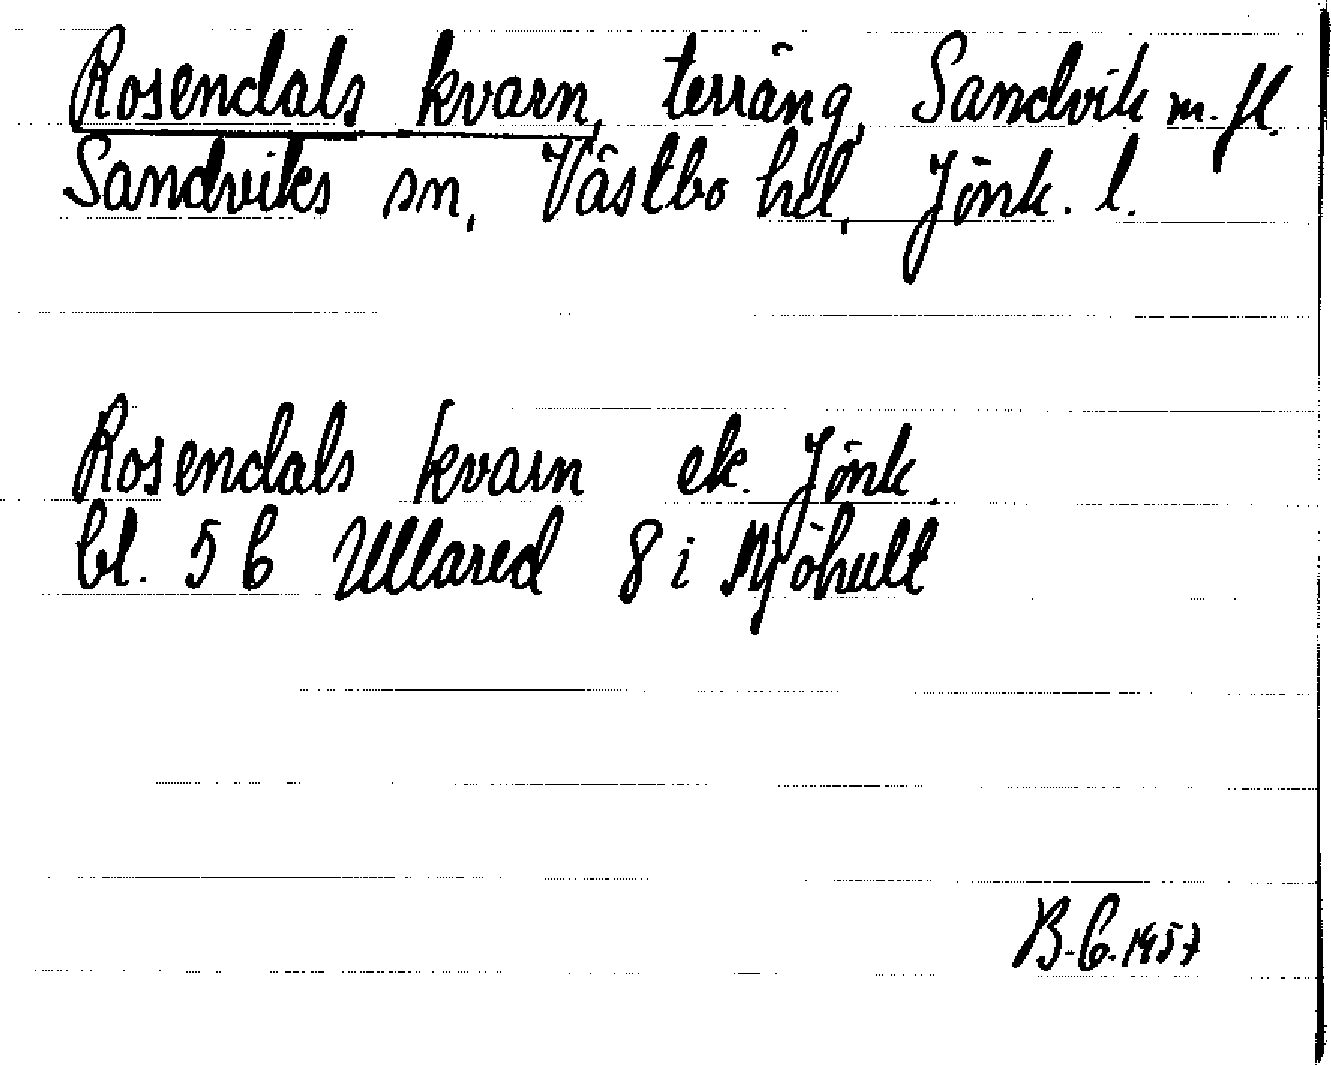 Rosendals kvarn, terräng, Sandvik m. fl.
Sandviks sn, Västbo hd, Jönk. l.
Rosendals kvarn ek. Jönk.
bl. 5 6 Ullared 8 i Mjöhult
B.C. 1957